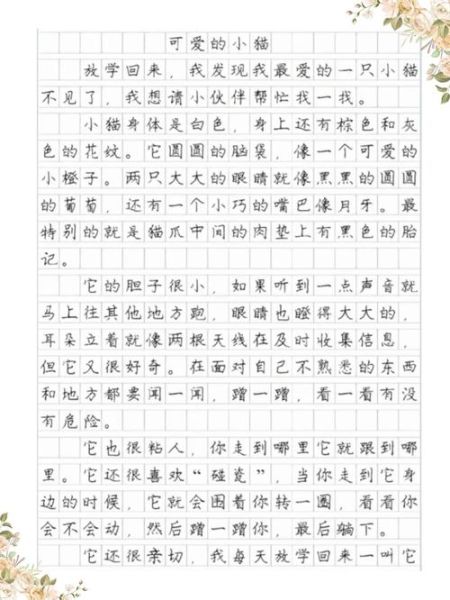 可爱的小猫
放学回来，我发现我最爱的一只小猫
不见了，我想请小伙伴帮忙我一找。
小猫身体是白色，身上还有棕色和灰
色的花纹。它圆圆的脑袋，像一个可爱的
小橙子。两只大大的眼睛就像黑黑的圆圆
的葡萄，还有一个小巧的嘴巴像月牙。最
特别的就是猫爪中间的肉垫上有黑色的胎
记。
它的胆子很小，如果听到一点声音就
马上往其他地方跑，眼睛也瞪得大大的，
耳朵立着就像两根天线在及时收集信息，
但它又很好奇。在面对自己不熟悉的东西
和地方都要闻一闻，蹭一蹭，看一看有没
有危险。
它也很粘人，你走到哪里它就跟到哪
里。它还很喜欢“碰瓷”，当你走到它身
边的时候，它就会围着你转一圈，看看你
会不会动，然后蹭一蹭你，最后躺下。
它还很亲切，我每天放学回来一叫它